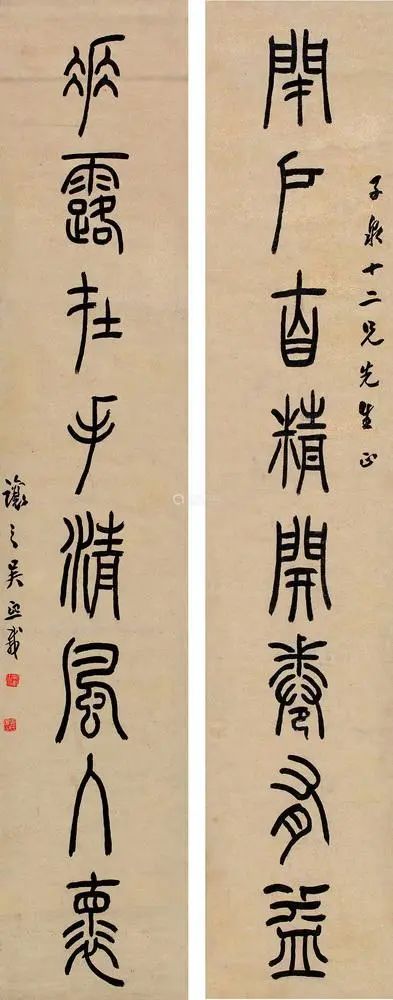 閉戶自精開卷有益
子泉十二兄先生正
垂露在手清風入懷
讓之吳熙載